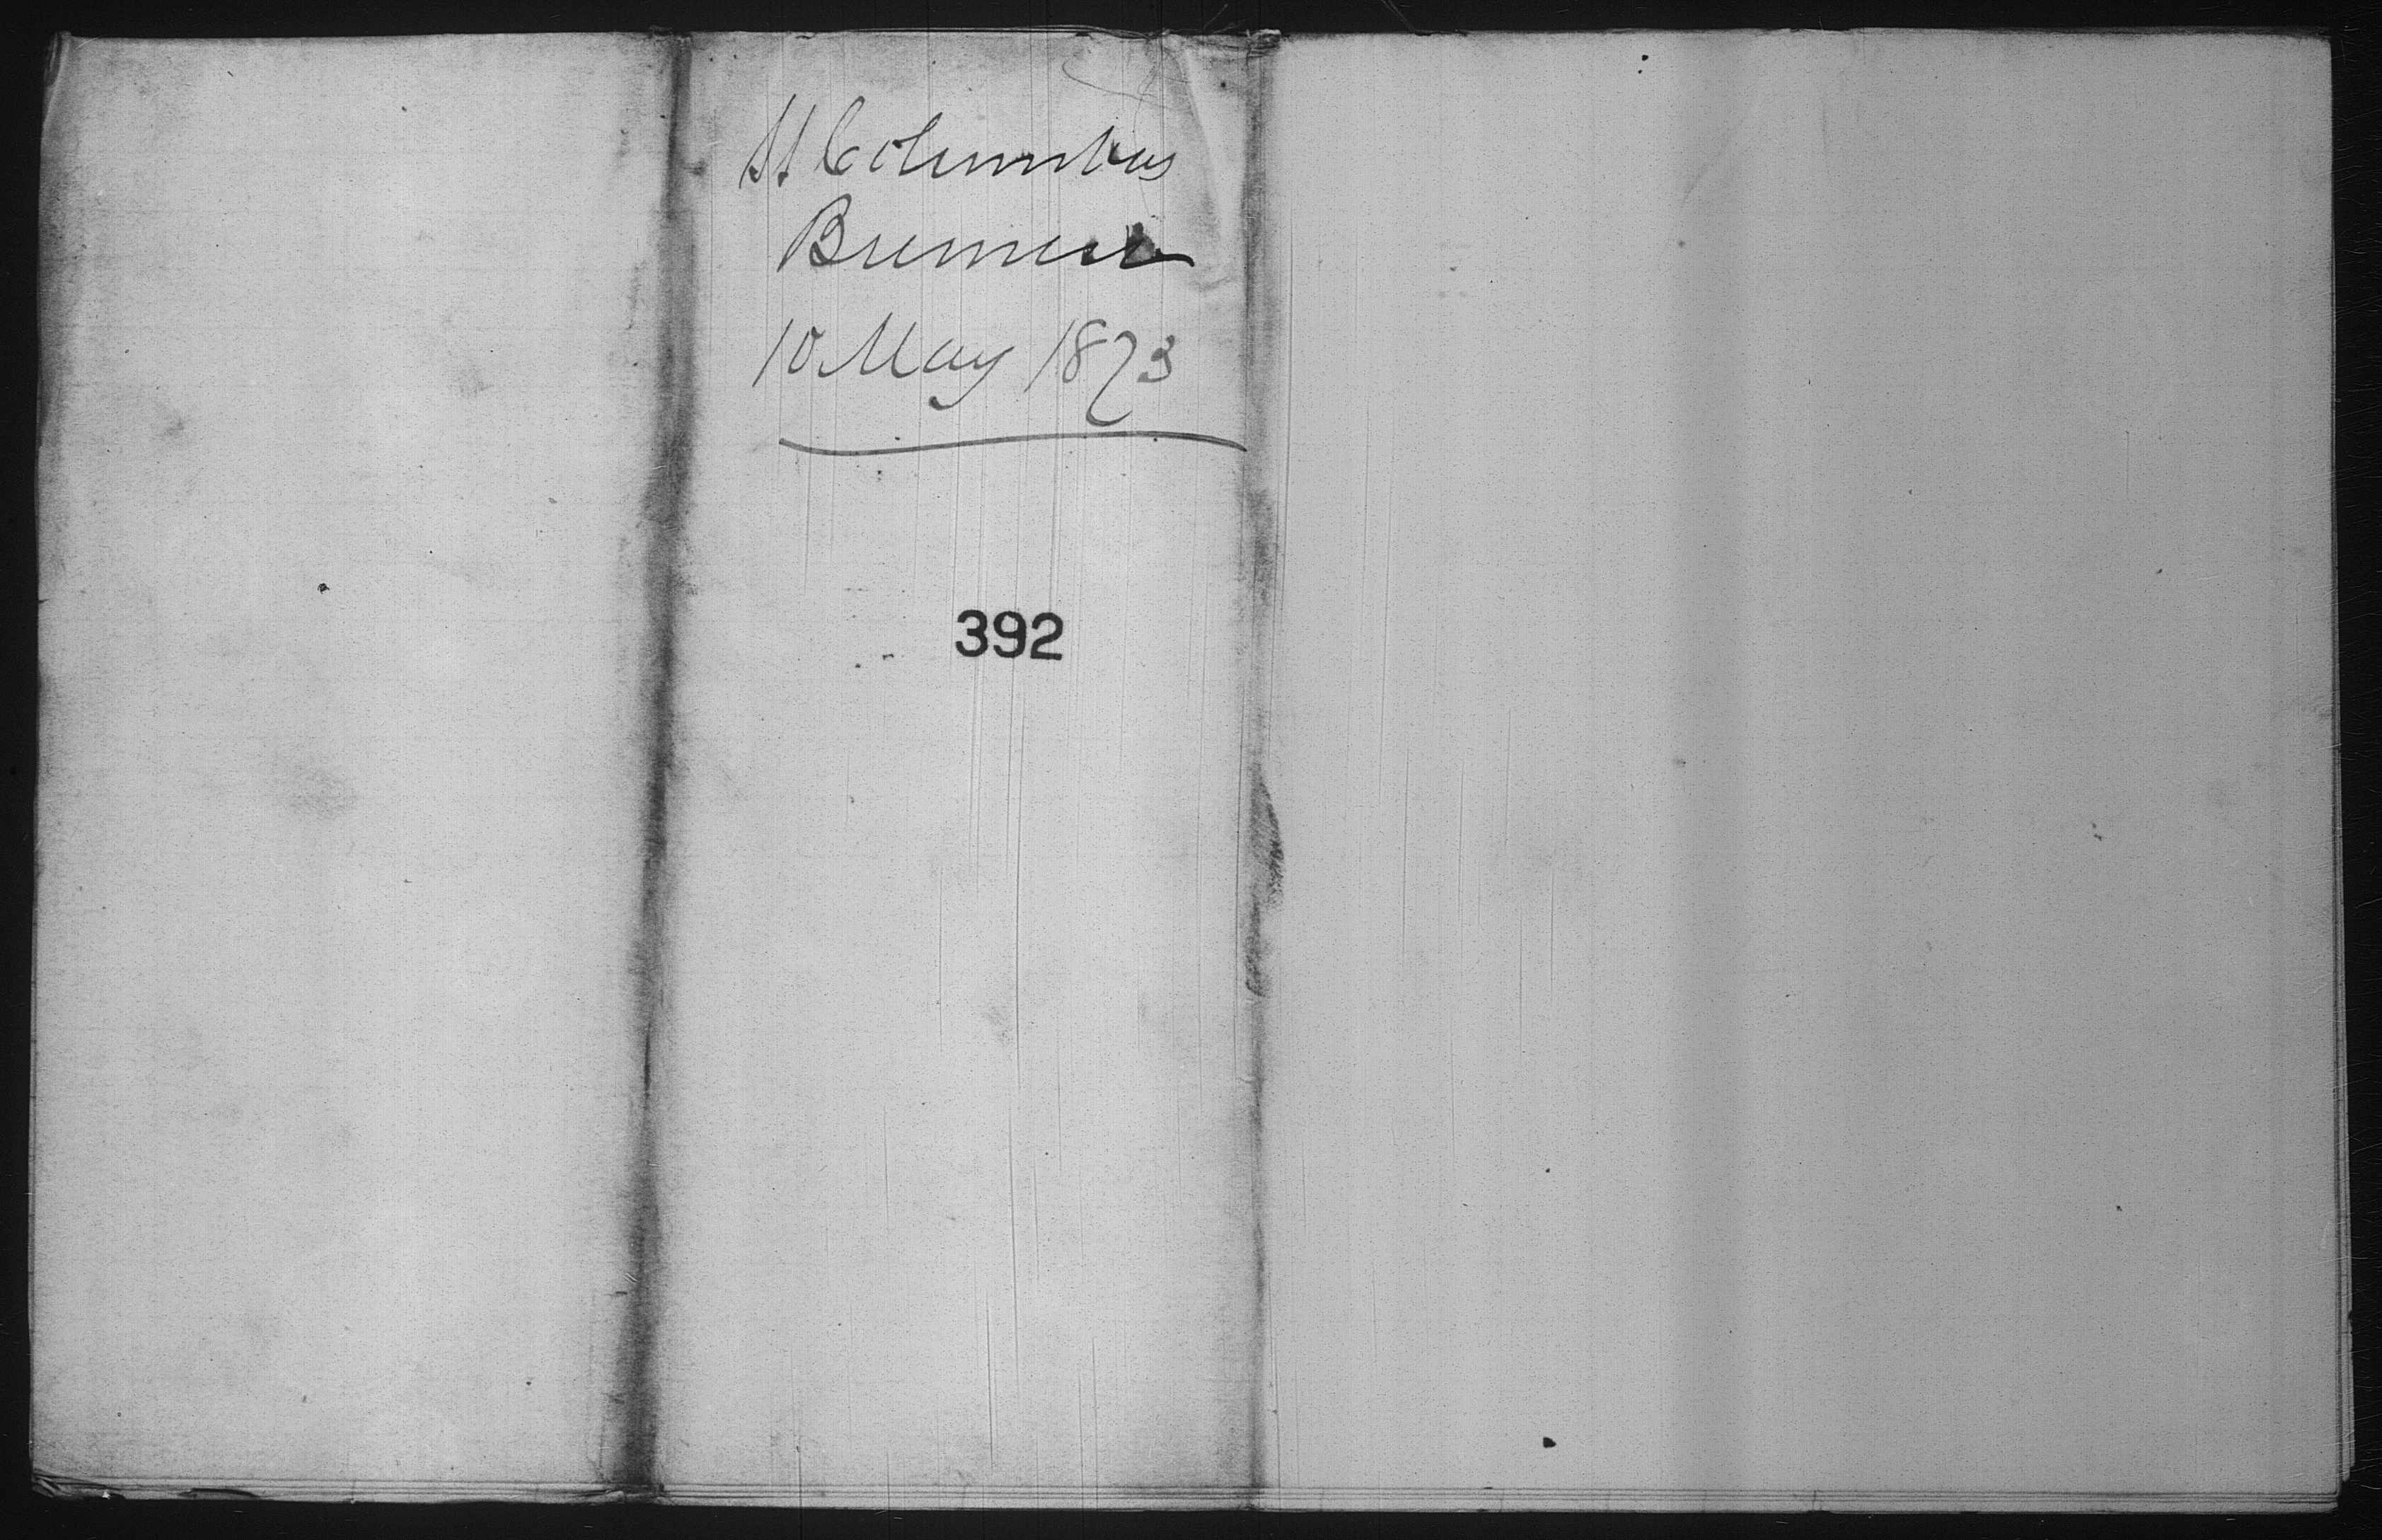 SS Columbus
Bremen
10 May 1873
392